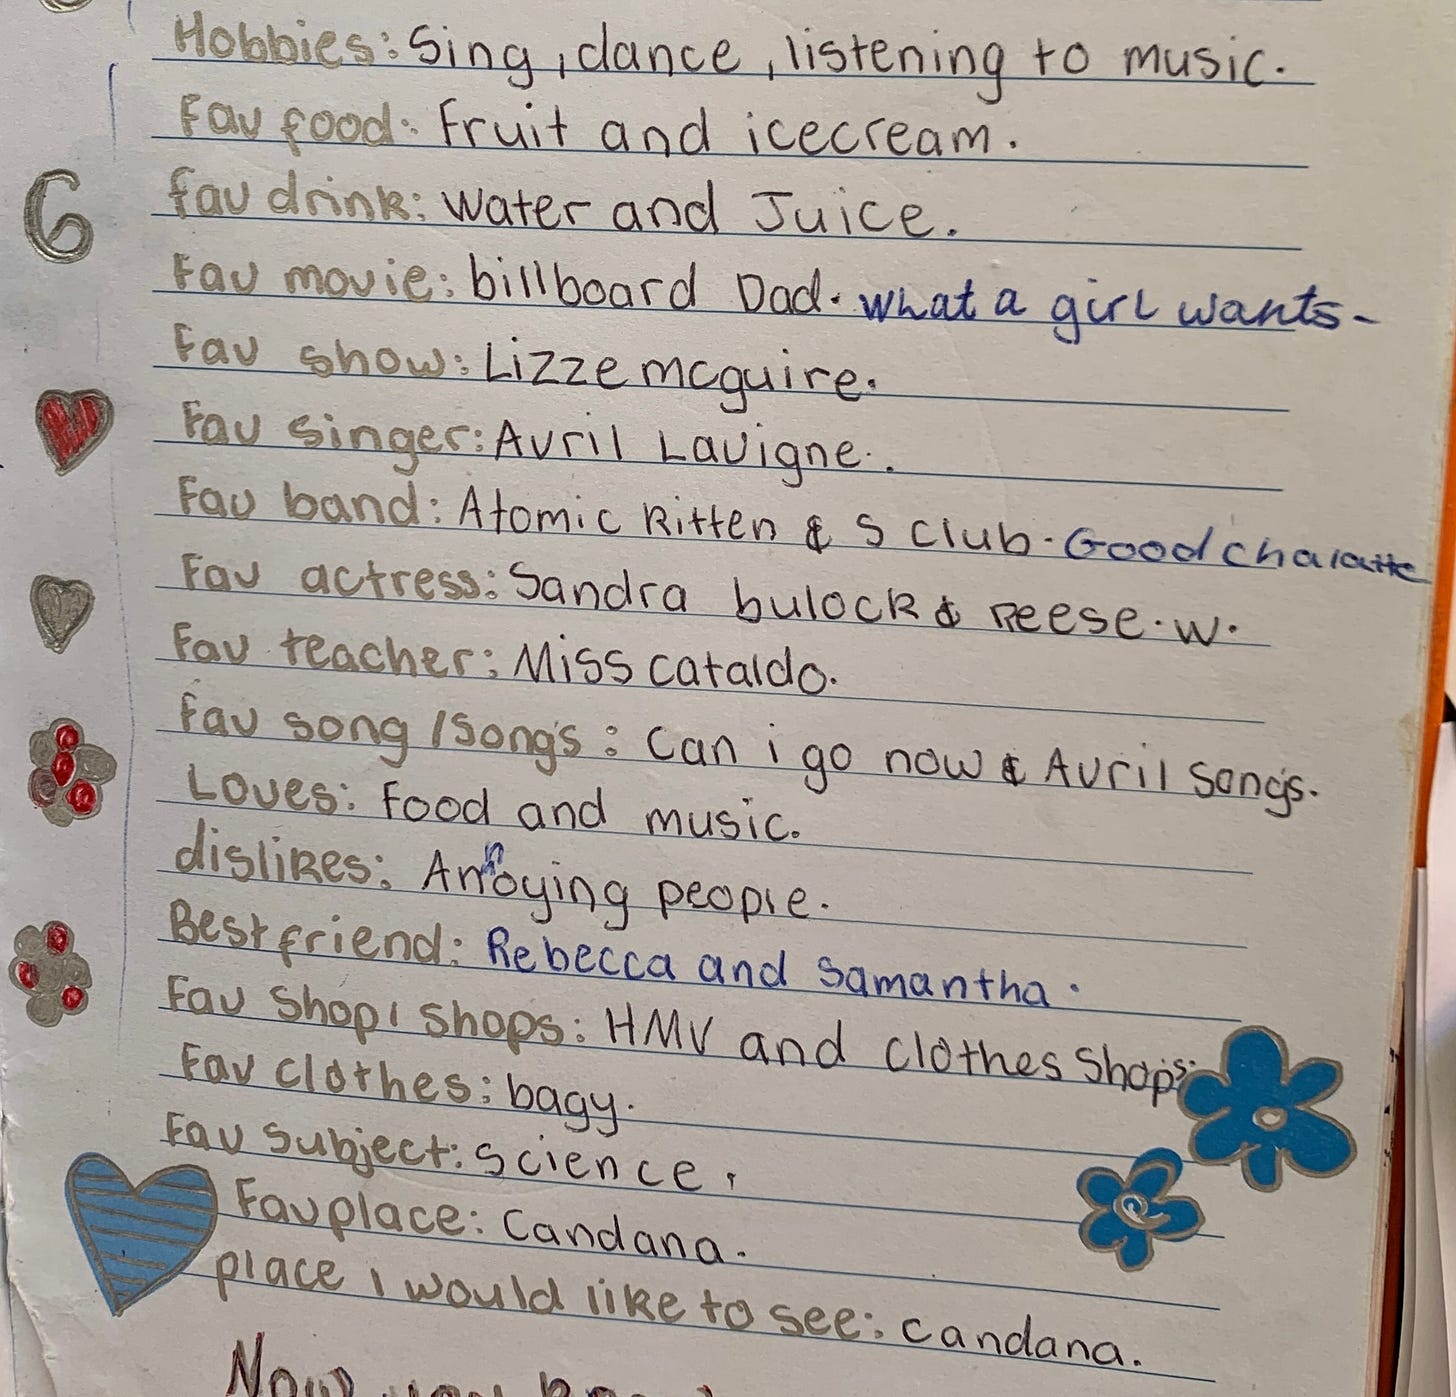 Hobbies: Sing, dance, listening to music.
Fav food: Fruit and icecream.
6
fav drink: Water and Juice.
Fav movie: billboard Dad. what a girl wants-
Fav show: Lizze mcguire.
Fav singer: Avril Lavigne..
Fav band: Atomic Kitten & S Club. Good chalatte
Fav actress: Sandra bulock & Reese.w.
Fav teacher: Miss cataldo.
Fav song/songs: Can i go now & Avril songs.
Loves: Food and music.
dislikes: Annoying people.
Best friend: Rebecca and Samantha.
Fav Shop/shops: HMV and clothes shops.
Fav clothes: bagy.
Fav subject: Science.
Fav place: Candana.
place I would like to see: candana.
Now you